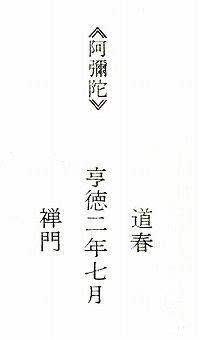 《阿彌陀》
道春
亨徳二年七月
禅門